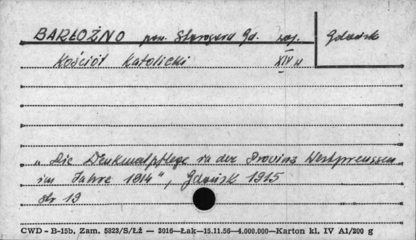 BARŁOŻNO pow. Starogard Gd. woj. Gdańsk
Kościół Katolicki XIV w
„Die Denkmalpflege in der Provinz Westpreussen
im Jahre 1914", Gdańsk 1915
str 19
CWD - B-15b. Zam. 5823/S/Łż — 3016—Łak—15.11.56—4.000.000—Karton kl. IV A1/200 g